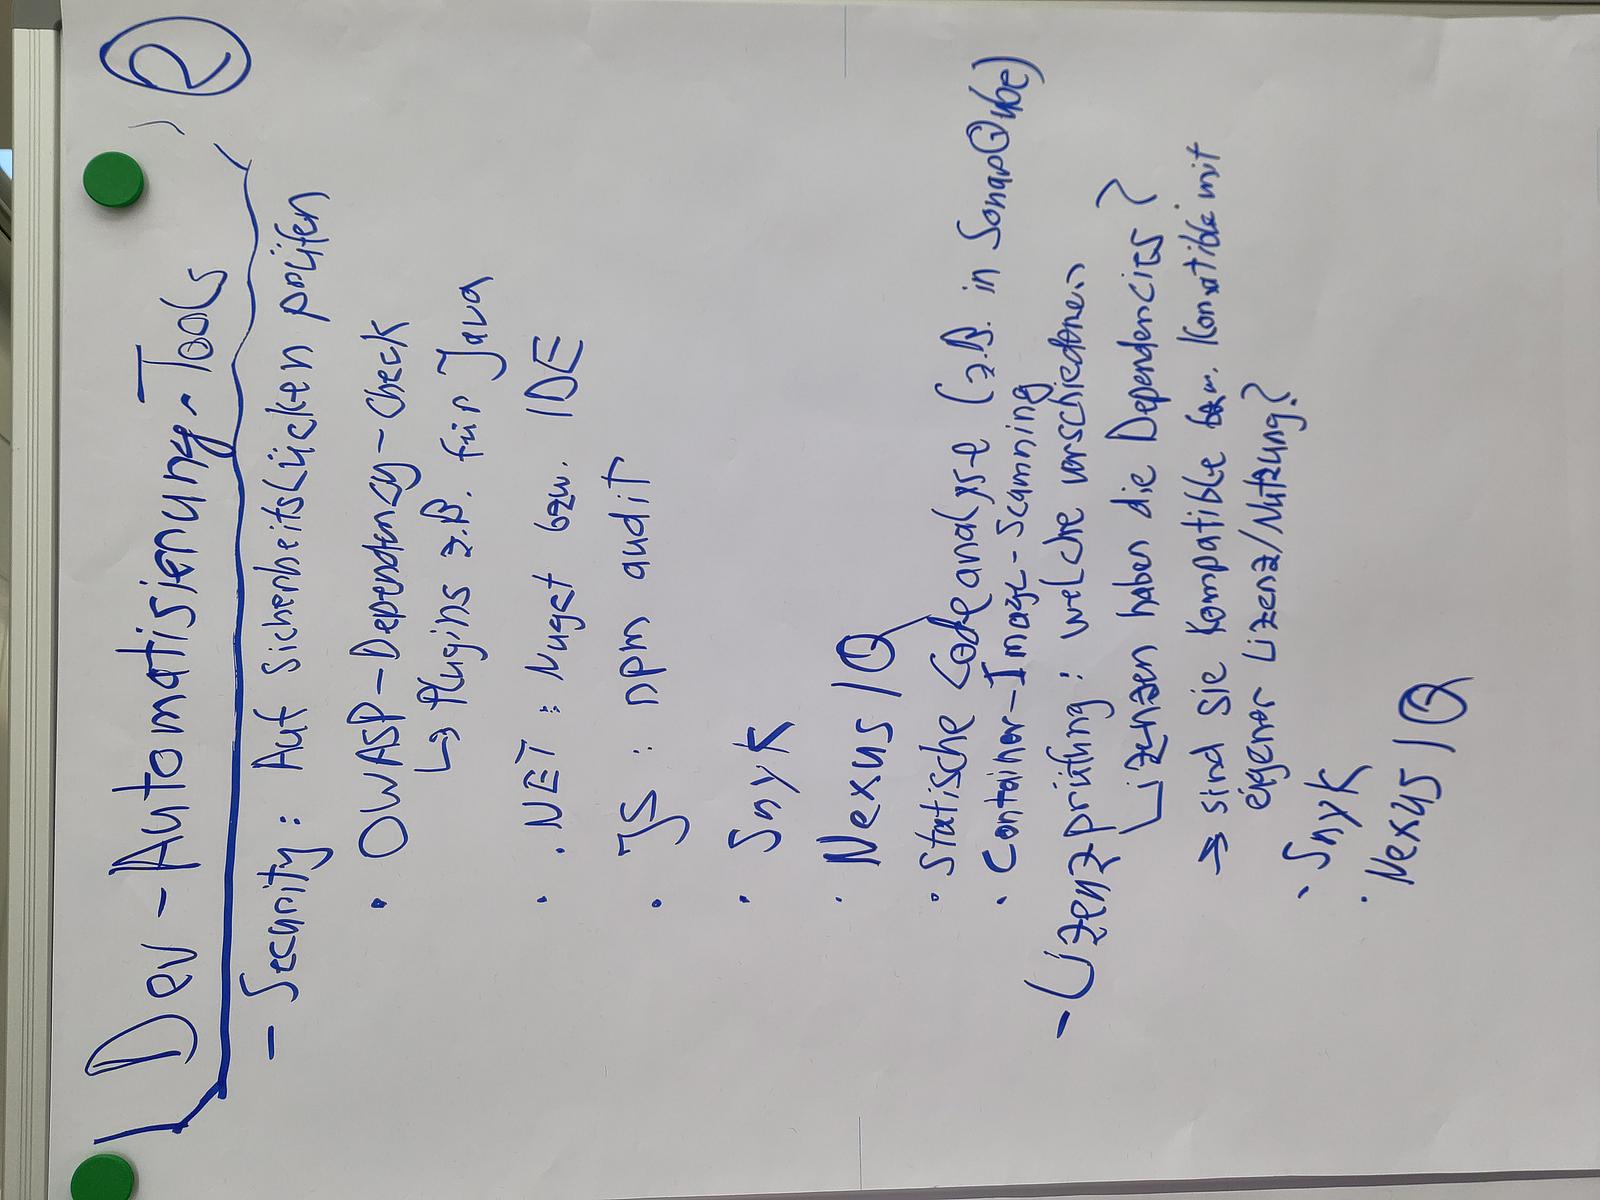 Dev-Automatisierung-Tools
2
- Security: Auf Sicherheitslücken prüfen
• OWASP-Dependency-Check
↳ Plugins z.B. für Java
• .NET: Nuget bzw. IDE
• JS: npm audit
• Snyk
• Nexus IQ
• Statische Codeanalyse (z.B. in SonarQube)
• Container-Image-Scanning
- Lizenzprüfung: welche verschiedenen
Lizenzen haben die Dependencies?
→ sind sie kompatible bzw. kompatible mit
eigener Lizenz/Nutzung?
• Snyk
• Nexus IQ